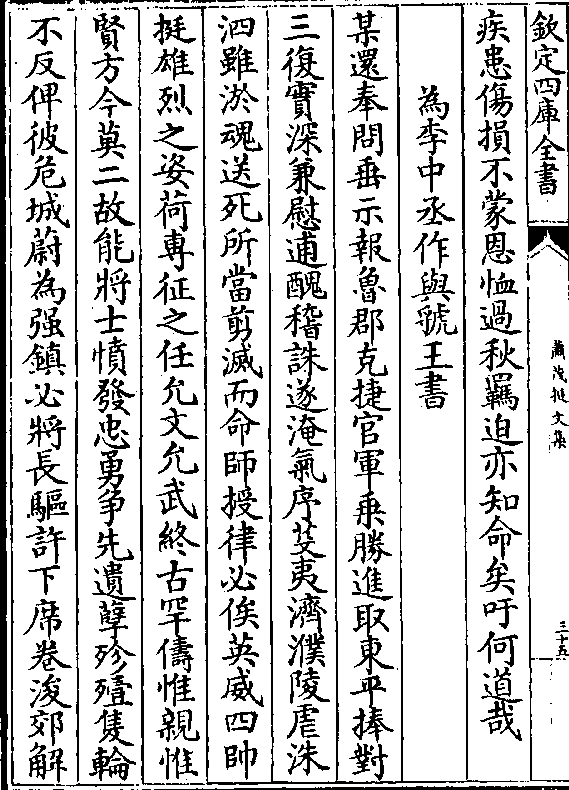 欽定四庫全書
蕭茂挺文集
三十五
疾患傷損不蒙恩恤過秋羈迫亦知命矣吁何道哉
為李中丞作與虢王書
某還奉問垂示報魯郡克捷官軍乗勝進取東平捧對
三復寳深兼慰逋醜稽誅遂淹氣序芟夷濟濮陵虐洙
泗雖淤魂送死所當剪滅而命師授律必俟英威四帥
挺雄烈之姿荷専征之任允文允武終古罕儔惟親惟
賢方今莫二故能將士憤發忠勇争先遺孽殄殪隻輪
不反俾彼危城蔚為强鎮必將長驅許下席卷浚郊解